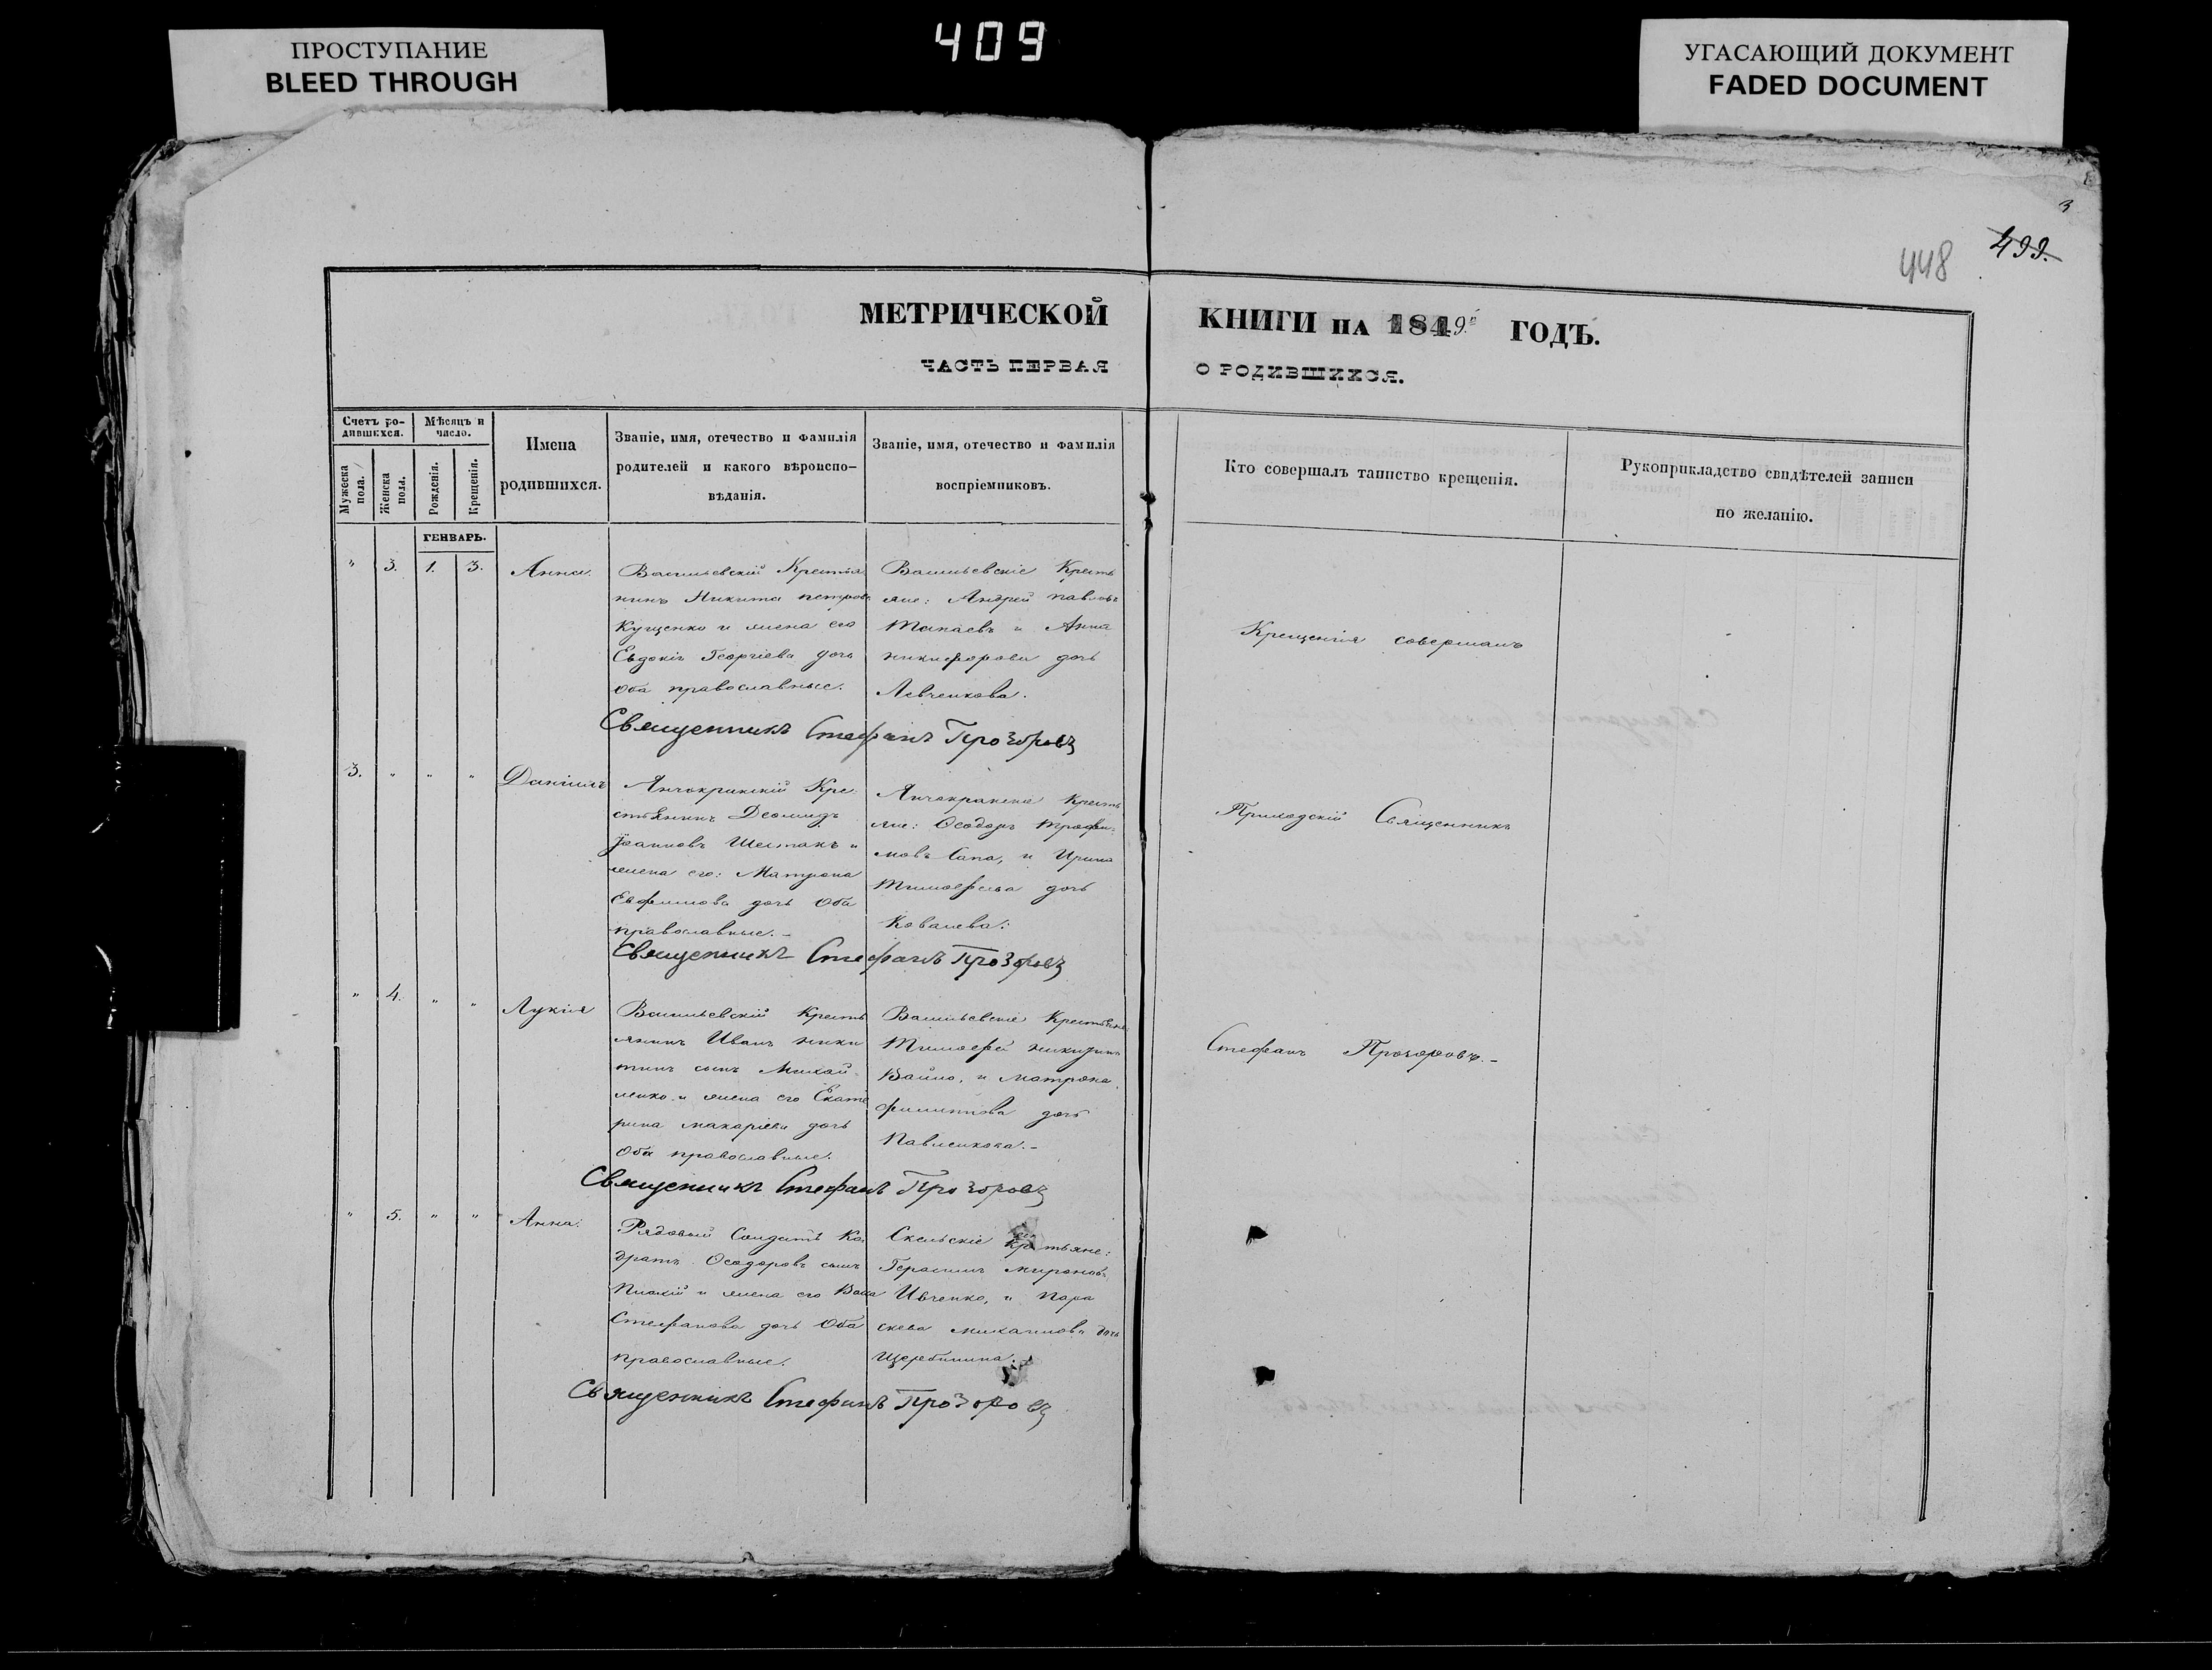 ПРОСТУПАНИЕ
BLEED THROUGH
409
УГАСАЮЩИЙ ДОКУМЕНТ
FADED DOCUMENT
3
448 499.
МЕТРИЧЕСКОЙ КНИГИ НА 1849й ГОДЪ.
ЧАСТЬ ПЕРВАЯ О РОДИВШИХСЯ.
Счетъ ро-
дившихся.
Мужеска пола.
Женска пола.
Мѣсяцъ и
число.
Рожденія.
Крещенія.
Имена
родившихся.
Званіе, имя, отечество и фамилія
родителей и какого вѣроиспо-
вѣданія.
Званіе, имя, отечество и фамилія
воспріемниковъ.
Кто совершалъ таинство крещенія.
Рукоприкладство свидѣтелей записи
по желанію.
ГЕНВАРЬ.
" 3. 1. 3. Анна.
Васильевскій Крестья
нинъ Никита петровъ
Кущенко и жена его
Евдокія Георгіева дочь
оба православные.
Васильевскіе Кресть
яне: Андрей павловъ
и Анна
никифорова дочь
Левченкова.
Священникъ Стефанъ Прозоровъ
3. " " " Даніилъ
Анчокракскій Кре
стьянинъ Деомидъ
Іоанновъ Шестакъ и
жена его: Матрона
Евфимова дочь Оба
православные. -
Анчокракскіе Кресть
яне: Ѳеодоръ трофи
мовъ Сапа, и Ирина
Тимоѳеева дочь
Ковалева:
Священникъ Стефанъ Прозоровъ
" 4. " " Лукія
Васильевскій Кресть
янинъ Иванъ ники
тинъ сынъ Михай
ленко и жена его Екате
рина макаріева дочь
Оба православные.
Васильевскіе Крестьяне
Тимоѳей никитинъ
и матрона
филиппова дочь
Павленкова. -
Священникъ Стефанъ Прозоровъ
" 5. " " Анна.
Рядовый Солдатъ Ко
дратъ Ѳеодоровъ сынъ
и жена его Васа
Стефанова дочь Оба
православные.
Скельскіе Крстьяне:
Герасимъ мироновъ
Ивченко, и Пара
скева михаилова дочь
Щербинина.
Священникъ Стефанъ Прозоровъ
Крещенія совершалъ
Приходскій Священникъ
Стефанъ Прозоровъ. -